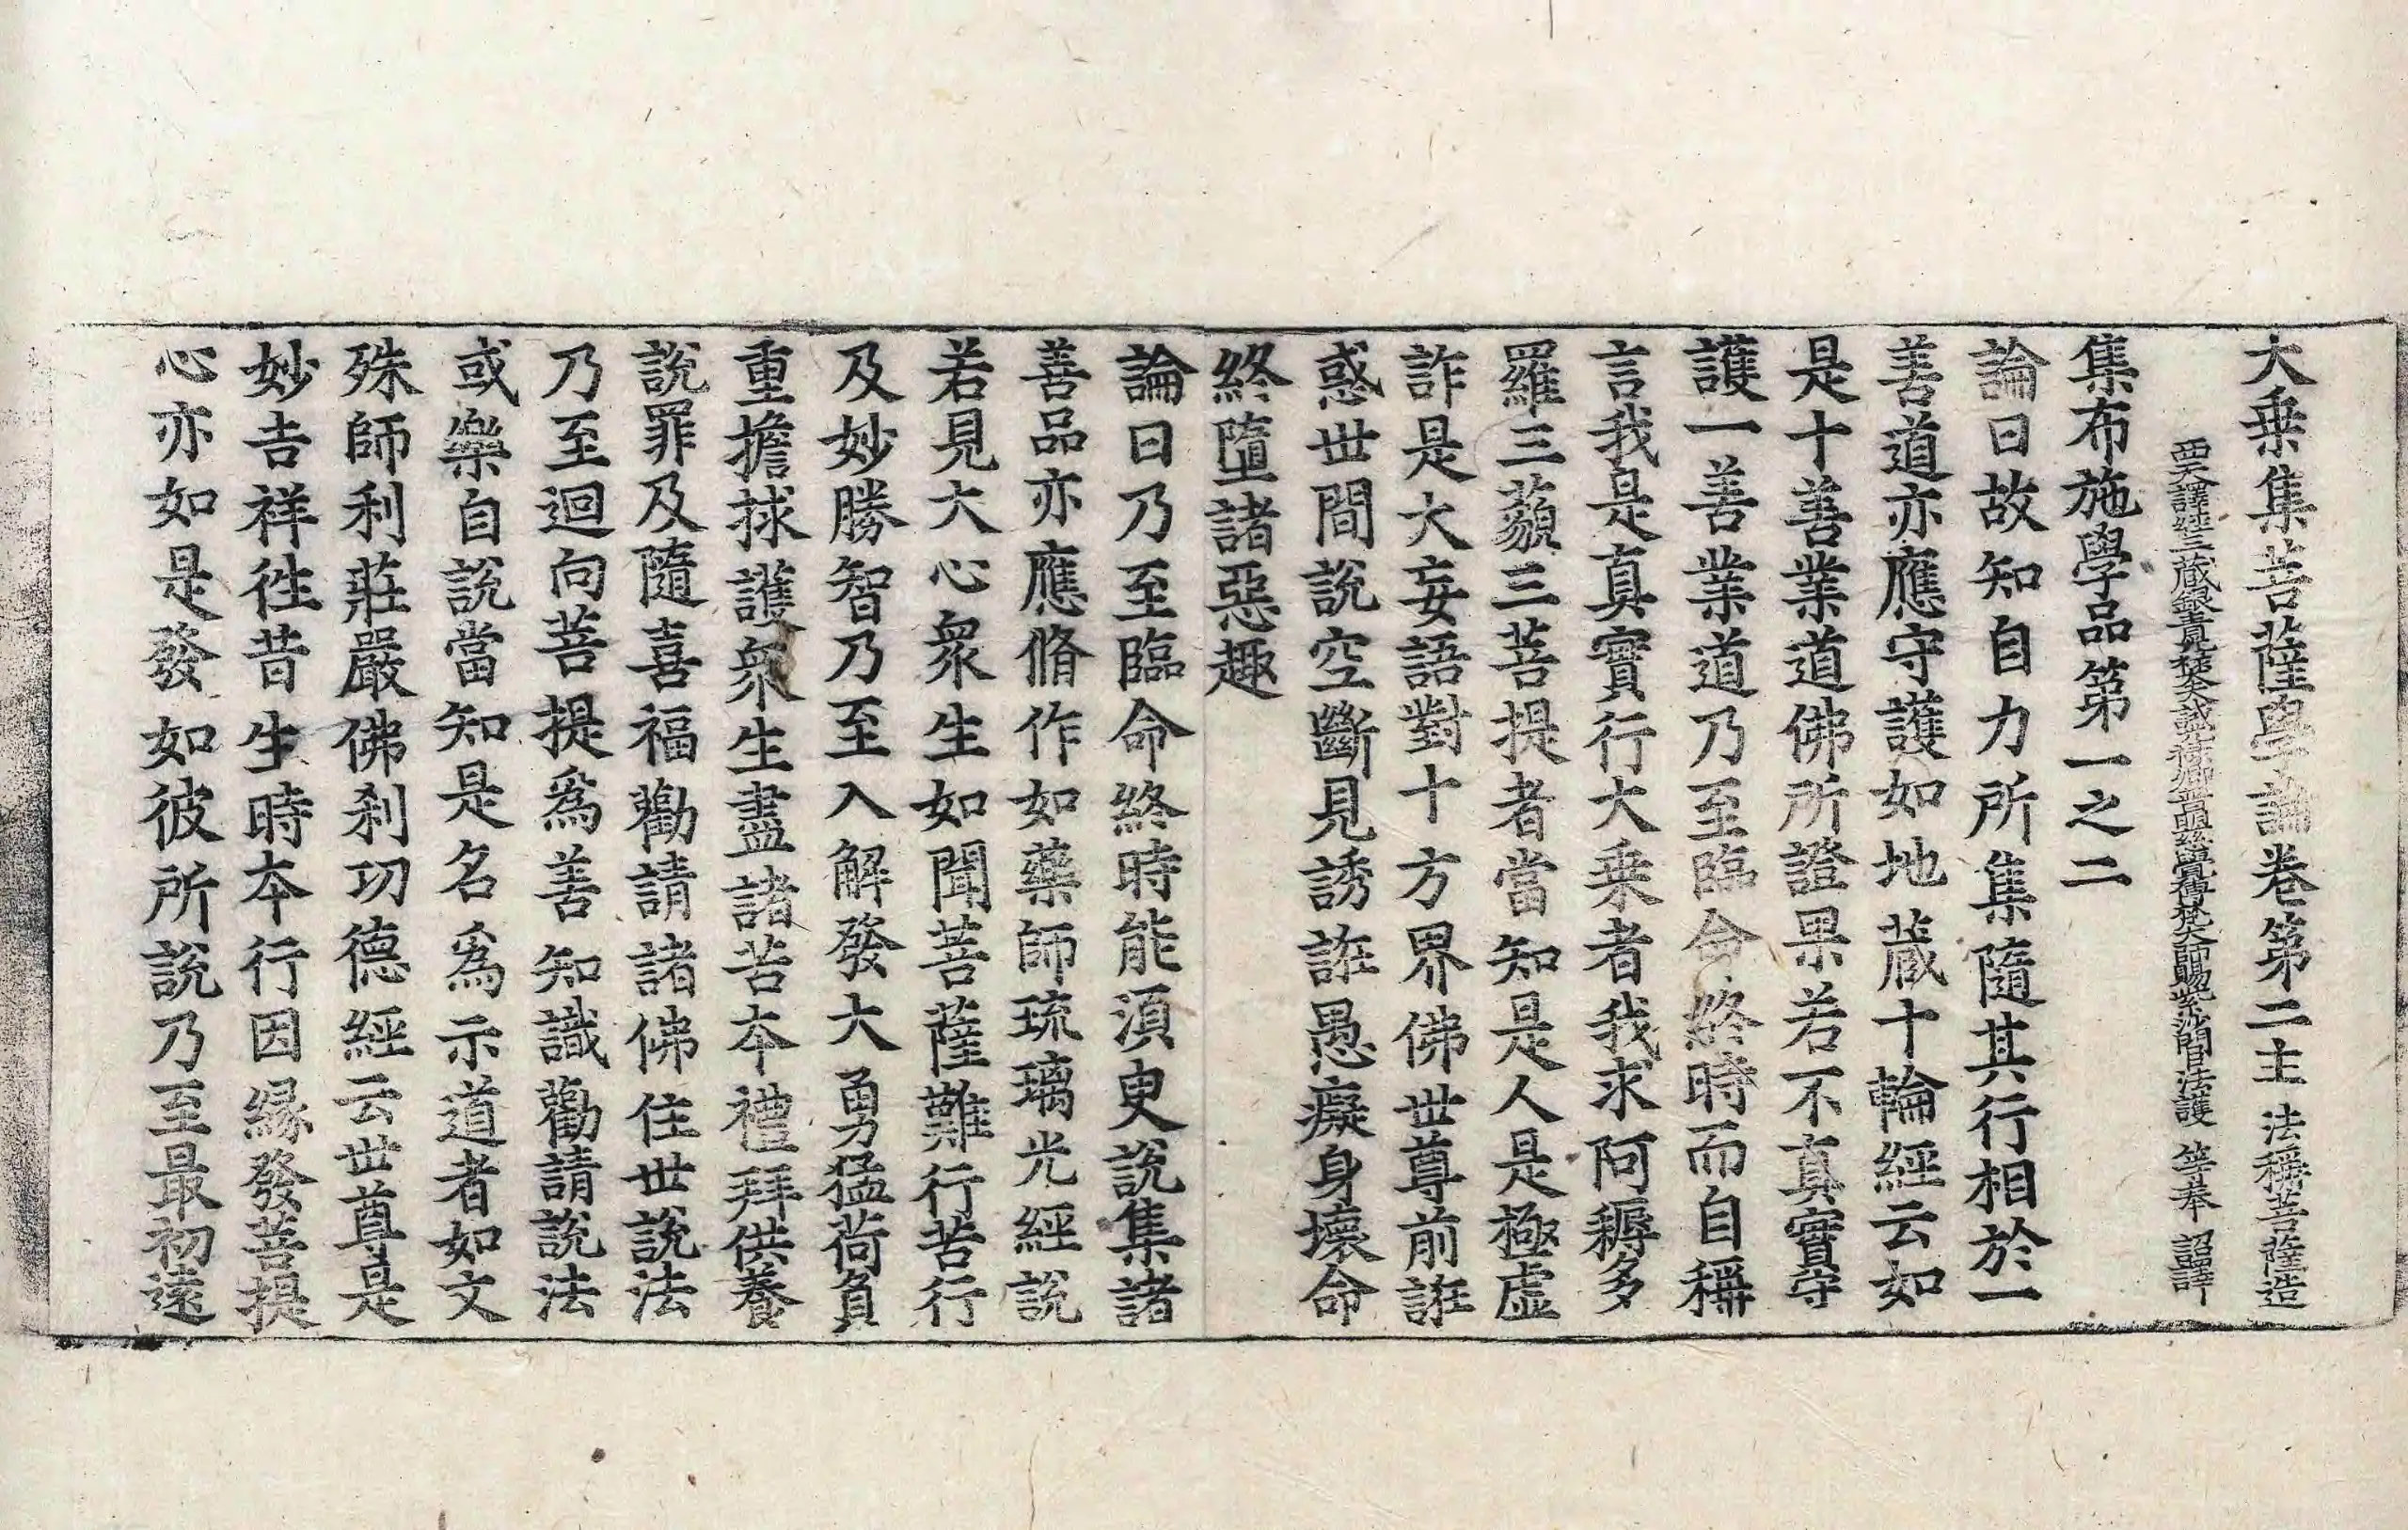 大乗集菩薩學論卷第二主 法稱菩薩造
西天譯經三藏銀青光祿大夫試鴻臚卿普明慈覺傳梵大師賜紫沙門臣法護 等奉 詔譯
集布施學品第一之二
論曰故知自力所集隨其行相於一
善道亦應守護如地蔵十輪經云如
是十善業道佛所證果若不真實守
護一善業道乃至臨命終時而自稱
言我是真實行大乗者我求阿耨多
羅三藐三菩提者當知是人是極虛
詐是大妄語對十方界佛世尊前誑
惑世間說空斷見誘誑愚癡身壞命
終墮諸惡趣
論曰乃至臨命終時能湏臾說集諸
善品亦應脩作如藥師琉璃光經說
若見大心衆生如聞菩薩難行苦行
及妙勝智乃至入解發大勇猛荷負
重擔捄護衆生盡諸苦夲禮拜供養
說罪及隨喜福勸請諸佛住世說法
乃至迴向菩提爲善知識勸請說法
或樂自說當知是名爲示道者如文
殊師利莊嚴佛刹功德經云世尊是
妙吉祥徃昔生時夲行因縁發菩提
心亦如是發如彼所說乃至最初遠